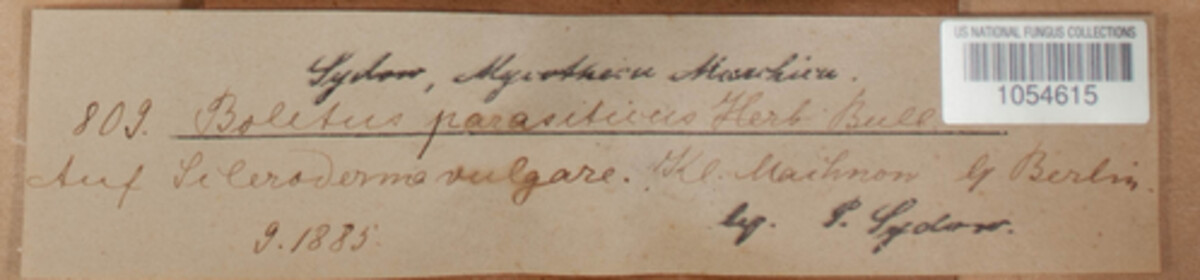 Sydow, Mycotheca Marchica.
US NATIONAL FUNGUS COLLECTIONS
1054615
809. Boletus parasiticus Herb Bull
Auf Scleroderma vulgare. Kl. Machnow b/ Berlin.
9.1885.
leg. P. Sydow.